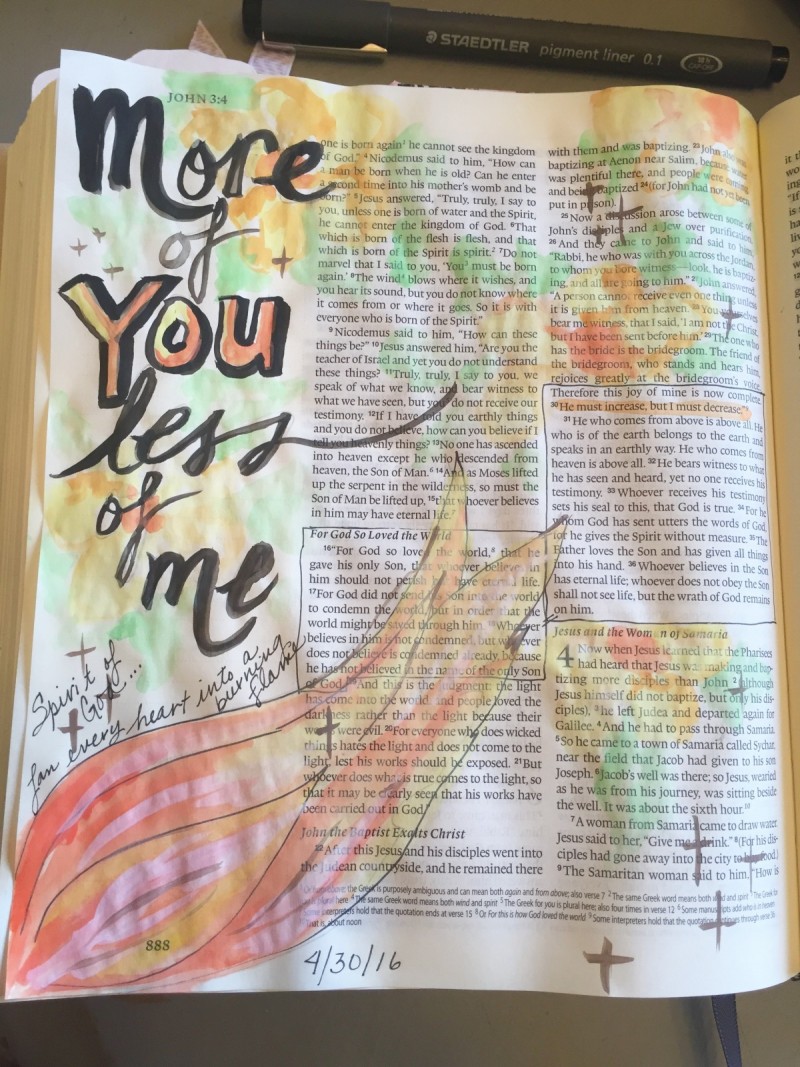 STAEDTLER pigment liner 0.1
JOHN 3:4
More
of
You
less
of
me
Spirit of
God...
fan every heart into a
burning
flame
one is born again he cannot see the kingdom
of God." 4Nicodemus said to him, "How can
a man be born when he is old? Can he enter
a second time into his mother's womb and be
born?" 5Jesus answered, "Truly, truly, I say to
you, unless one is born of water and the Spirit,
he cannot enter the kingdom of God. 6That
which is born of the flesh is flesh, and that
which is born of the Spirit is spirit. 7Do not
marvel that I said to you, 'You must be born
again.' 8The wind blows where it wishes, and
you hear its sound, but you do not know where
it comes from or where it goes. So it is with
everyone who is born of the Spirit."
9Nicodemus said to him, "How can these
things be?" 10Jesus answered him, "Are you the
teacher of Israel and yet you do not understand
these things? 11Truly, truly, I say to you, we
speak of what we know, and bear witness to
what we have seen, but you do not receive our
testimony. 12If I have told you earthly things
and you do not believe, how can you believe if I
tell you heavenly things? 13No one has ascended
into heaven except he who descended from
heaven, the Son of Man. 14And as Moses lifted
up the serpent in the wilderness, so must the
Son of Man be lifted up, 15that whoever believes
in him may have eternal life.
For God So Loved the World
16"For God so loved the world, that he
gave his only Son, that whoever believes in
him should not perish but have eternal life.
17For God did not send his Son into the world
to condemn the world, but in order that the
world might be saved through him. 18Whoever
believes in him is not condemned, but whoever
does not believe is condemned already, because
he has not believed in the name of the only Son
of God. 19And this is the judgment: the light
has come into the world, and people loved the
darkness rather than the light because their
works were evil. 20For everyone who does wicked
things hates the light and does not come to the
light, lest his works should be exposed. 21But
whoever does what is true comes to the light, so
that it may be clearly seen that his works have
been carried out in God."
John the Baptist Exalts Christ
22After this Jesus and his disciples went into
the Judean countryside, and he remained there
with them and was baptizing. 23John also was
baptizing at Aenon near Salim, because water
was plentiful there, and people were coming
and being baptized 24(for John had not yet been
put in prison).
25Now a discussion arose between some of
John's disciples and a Jew over purification.
26And they came to John and said to him,
"Rabbi, he who was with you across the Jordan,
to whom you bore witness—look, he is baptiz-
ing, and all are going to him." 27John answered,
"A person cannot receive even one thing unless
it is given him from heaven. 28You yourselves
bear me witness, that I said, 'I am not the Christ,
but I have been sent before him.' 29The one who
has the bride is the bridegroom. The friend of
the bridegroom, who stands and hears him,
rejoices greatly at the bridegroom's voice.
Therefore this joy of mine is now complete.
30He must increase, but I must decrease."
31He who comes from above is above all. He
who is of the earth belongs to the earth and
speaks in an earthly way. He who comes from
heaven is above all. 32He bears witness to what
he has seen and heard, yet no one receives his
testimony. 33Whoever receives his testimony
sets his seal to this, that God is true. 34For he
whom God has sent utters the words of God,
for he gives the Spirit without measure. 35The
Father loves the Son and has given all things
into his hand. 36Whoever believes in the Son
has eternal life; whoever does not obey the Son
shall not see life, but the wrath of God remains
on him.
Jesus and the Woman of Samaria
4 Now when Jesus learned that the Pharisees
had heard that Jesus was making and bap-
tizing more disciples than John 2(although
Jesus himself did not baptize, but only his dis-
ciples), 3he left Judea and departed again for
Galilee. 4And he had to pass through Samaria.
5So he came to a town of Samaria called Sychar,
near the field that Jacob had given to his son
Joseph. 6Jacob's well was there; so Jesus, wearied
as he was from his journey, was sitting beside
the well. It was about the sixth hour.
7A woman from Samaria came to draw water.
Jesus said to her, "Give me a drink." 8(For his dis-
ciples had gone away into the city to buy food.)
9The Samaritan woman said to him, "How is
the Greek is purposely ambiguous and can mean both again and from above; also verse 7 2 The same Greek word means both wind and spirit 3 The Greek for
you is plural here 4 The same Greek word means both wind and spirit 5 The Greek for you is plural here; also four times in verse 12 6 Some manuscripts add who is in heaven
Some interpreters hold that the quotation ends at verse 15 8 Or For this is how God loved the world 9 Some interpreters hold that the quotation continues through verse 36
That is, about noon
888
4/30/16